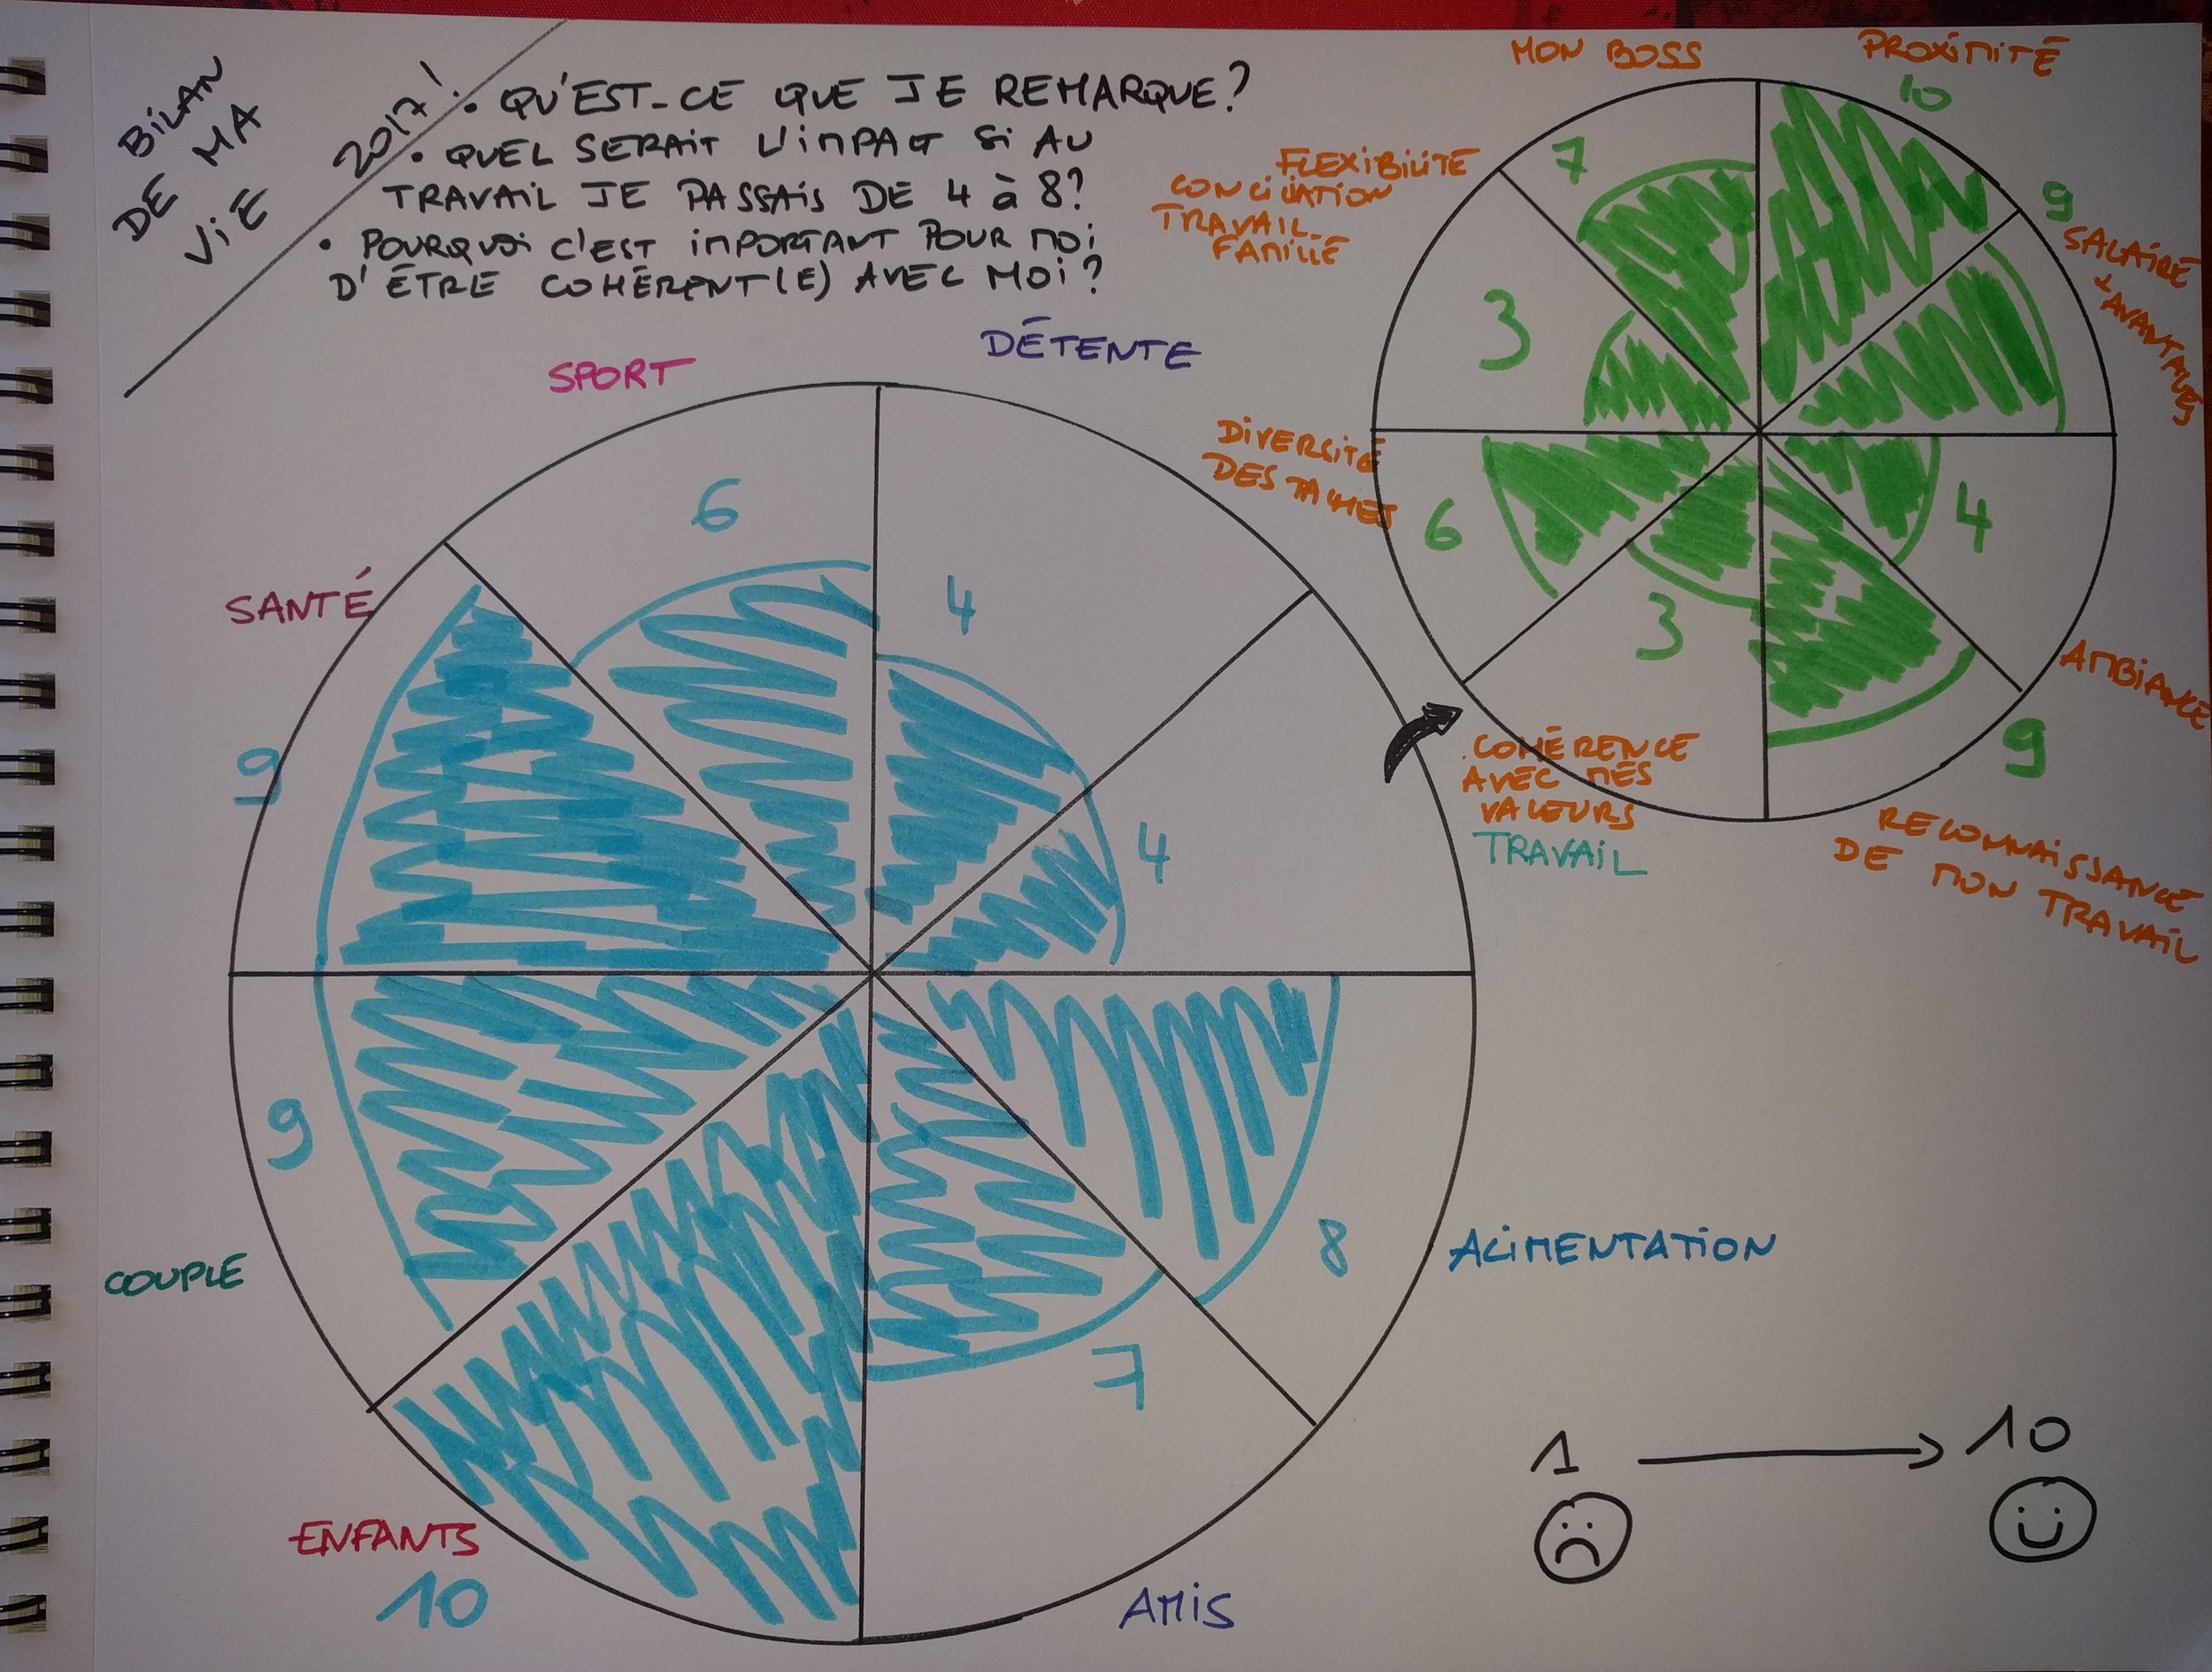 BILAN
DE MA
VIE
2017!
• QU'EST-CE QUE JE REMARQUE?
• QUEL SERAIT L'IMPACT SI AU
TRAVAIL JE PASSAIS DE 4 à 8?
• POURQUOI C'EST IMPORTANT POUR MOI
D'ÊTRE COHÉRENT(E) AVEC MOI?
MON BOSS
7
PROXIMITÉ
10
9
SALAIRE
+
AVANTAGES
FLEXIBILITÉ
CONCILIATION
TRAVAIL-
FAMILLE
3
DIVERSITÉ
DES TACHES
6
4
AMBIANCE
3
9
COHÉRENCE
AVEC MES
VALEURS
RECONNAISSANCE
DE MON TRAVAIL
TRAVAIL
4
DÉTENTE
4
SPORT
6
SANTÉ
9
9
COUPLE
ENFANTS
10
7
AMIS
8
ALIMENTATION
1 → 10